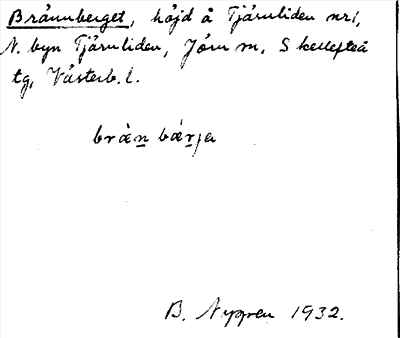 Brännberget, höjd å Tjärnliden nr1,
N. byn Tjärnliden, Jörn sn, Skellefteå
tg, Västerb. l.
brän bärja
B. Nygren 1932.